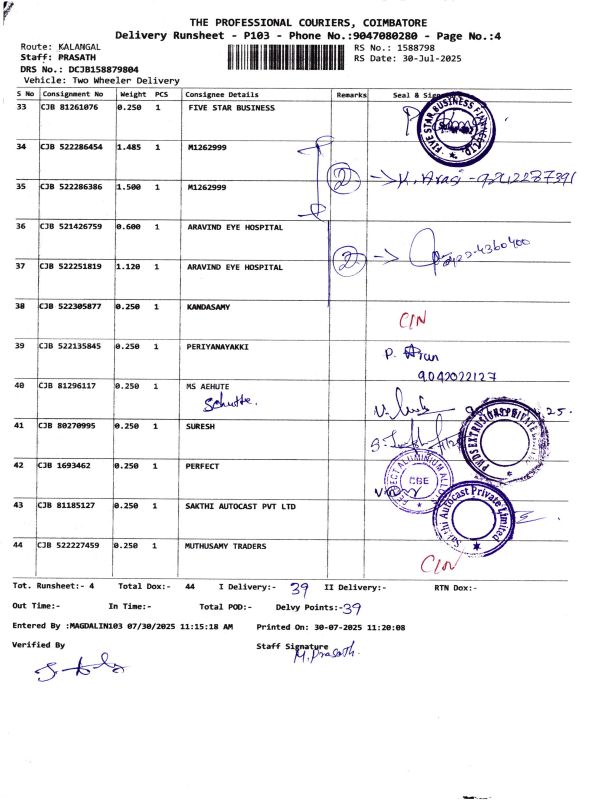 THE PROFESSIONAL COURIERS, COIMBATORE
Delivery Runsheet - P103 - Phone No.:9047080280 - Page No.:4
Route: KALANGAL RS No.: 1588798
Staff: PRASATH RS Date: 30-Jul-2025
DRS No.: DCJB158879804
Vehicle: Two Wheeler Delivery
S No Consignment No Weight PCS Consignee Details Remarks Seal &
33 CJB 81261076 0.250 1 FIVE STAR BUSINESS
34 CJB 522286454 1.485 1 M1262999
35 CJB 522286386 1.500 1 M1262999 2 K. Arasi
36 CJB 521426759 0.600 1 ARAVIND EYE HOSPITAL
37 CJB 522251819 1.120 1 ARAVIND EYE HOSPITAL 2 0422-4360400
38 CJB 522305877 0.250 1 KANDASAMY C/N
39 CJB 522135845 0.250 1 PERIYANAYAKKI P. Arun
9042022127
40 CJB 81296117 0.250 1 MS AEHUTE
Schutte.
41 CJB 80270995 0.250 1 SURESH
42 CJB 1693462 0.250 1 PERFECT CBE
43 CJB 81185127 0.250 1 SAKTHI AUTOCAST PVT LTD Sakthi Autocast Private Limited
44 CJB 522227459 0.250 1 MUTHUSAMY TRADERS C/N
Tot. Runsheet:- 4 Total Dox:- 44 I Delivery:- 39 II Delivery:- RTN Dox:-
Out Time:- In Time:- Total POD:- Delvy Points:- 39
Entered By :MAGDALIN103 07/30/2025 11:15:18 AM Printed On: 30-07-2025 11:20:08
Verified By Staff Signature
M. Prasath.